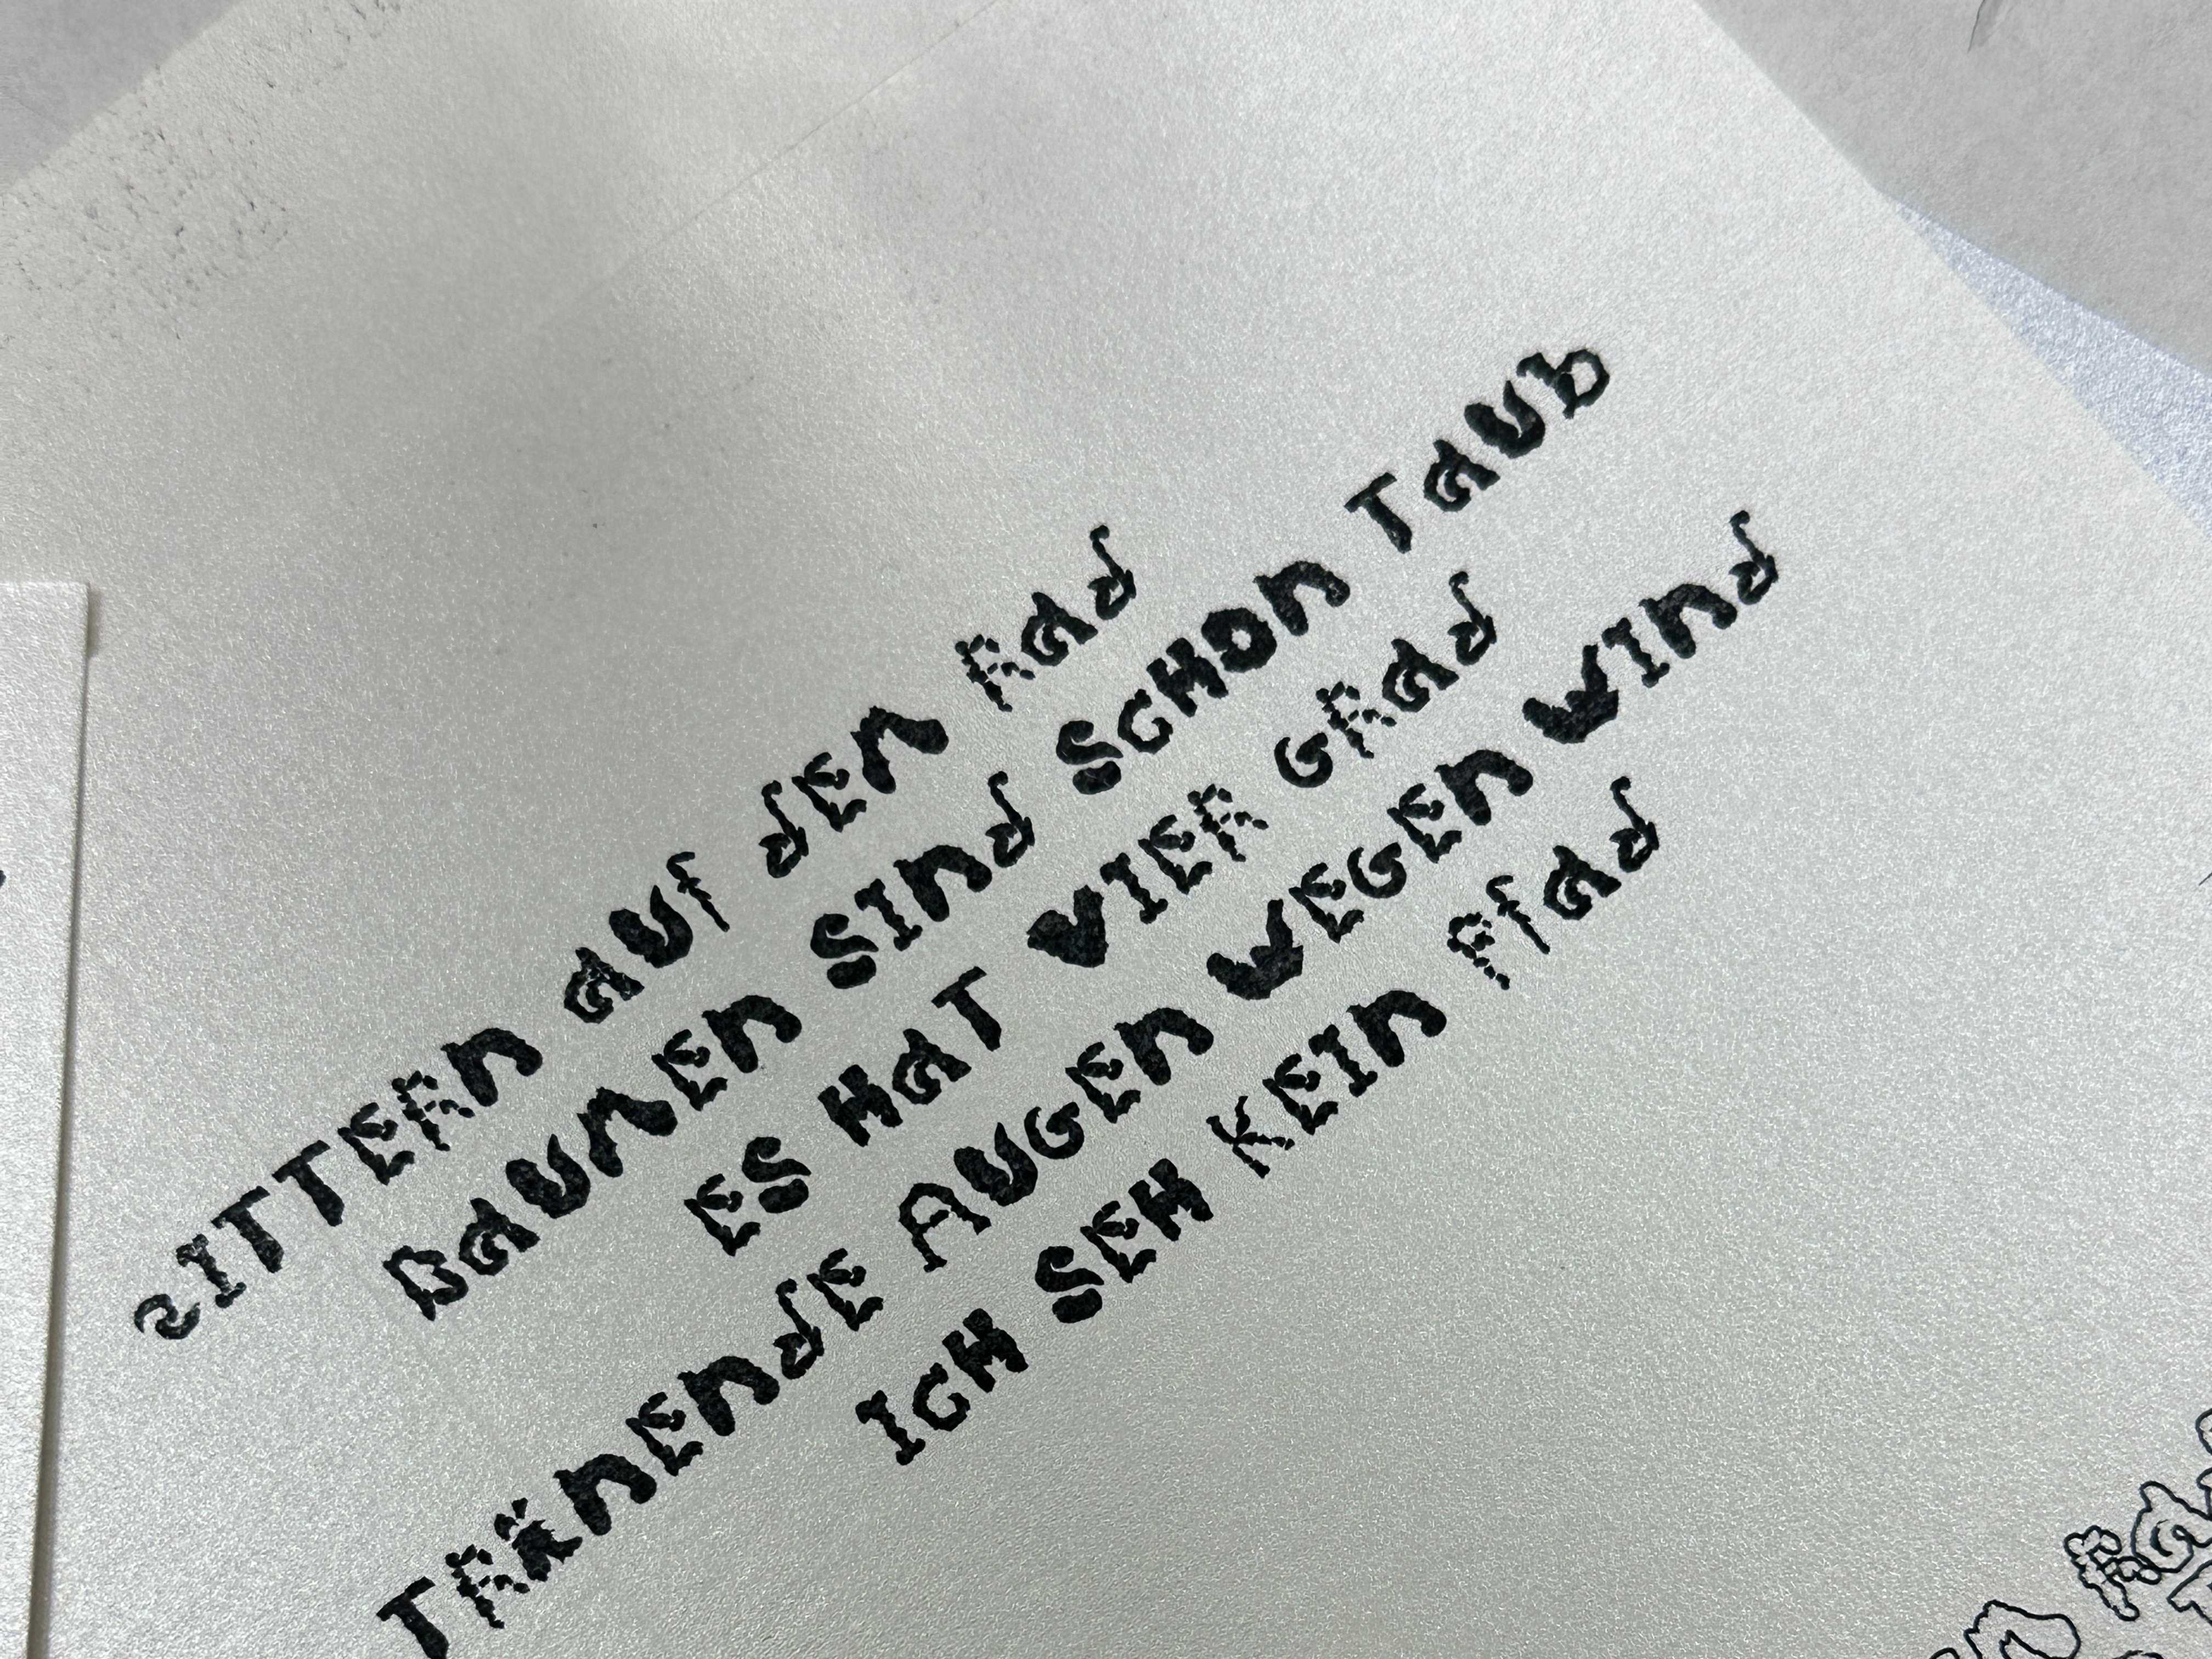 ZITTERN AUF DEN RAD
DAUMEN SIND SCHON TAUB
ES HAT VIER GRAD
TRÄNENDE AUGEN WEGEN WIND
ICH SEH KEIN PFAD